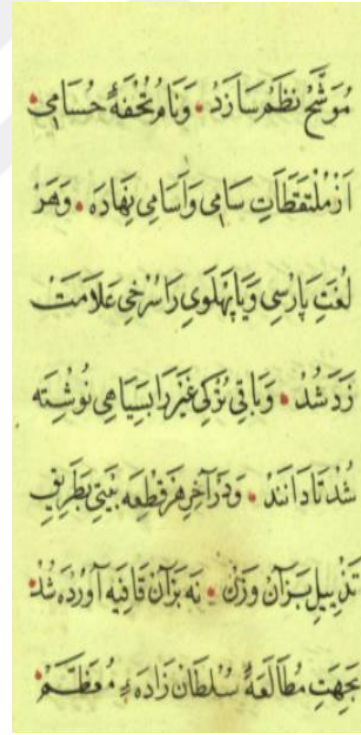 مُوَشَّحْ نَظْمْ سَازَدْ • وَنَامْ تُحْفَهٔ حُسَامِی •
اَزْمُلْتَقَطَاتِ سَامِی وَاَسَامِی نِهَادَه • وَهَرْ
لُغَتِ پَارْسِی وَیَا پَهْلَوِی رَا سُرْخِی عَلَامَتْ
زَدَ شُدْ • وَبَاقِی غَیْرَ رَا بِسِیَاهِی نُوِشْتَه
شُدْ تَا دَانَنْدْ • وَدَرْ آخِرِ هَرْ قِطْعَه بَیْتِی بَطَرِیقِ
تَذْیِیلِ بَرْ آنْ وَزْنْ • نَه بَرْ آنْ قَافِیَه آوَرْدَه شُدْ •
بَجِهَتِ مُطَالَعَهٔ سُلْطَانْ زَادَهٔ مُعَظَّمْ •